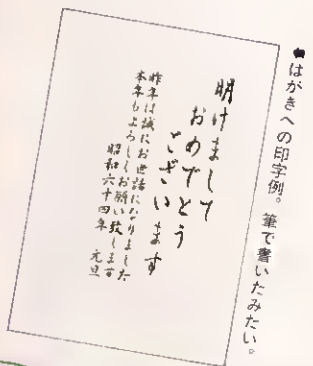 ●はがきへの印字例。筆で書いたみたい。
明けまして
おめでとう
ございます
昨年は誠にお世話になりました
本年もよろしくお願い致します
昭和六十四年 元旦